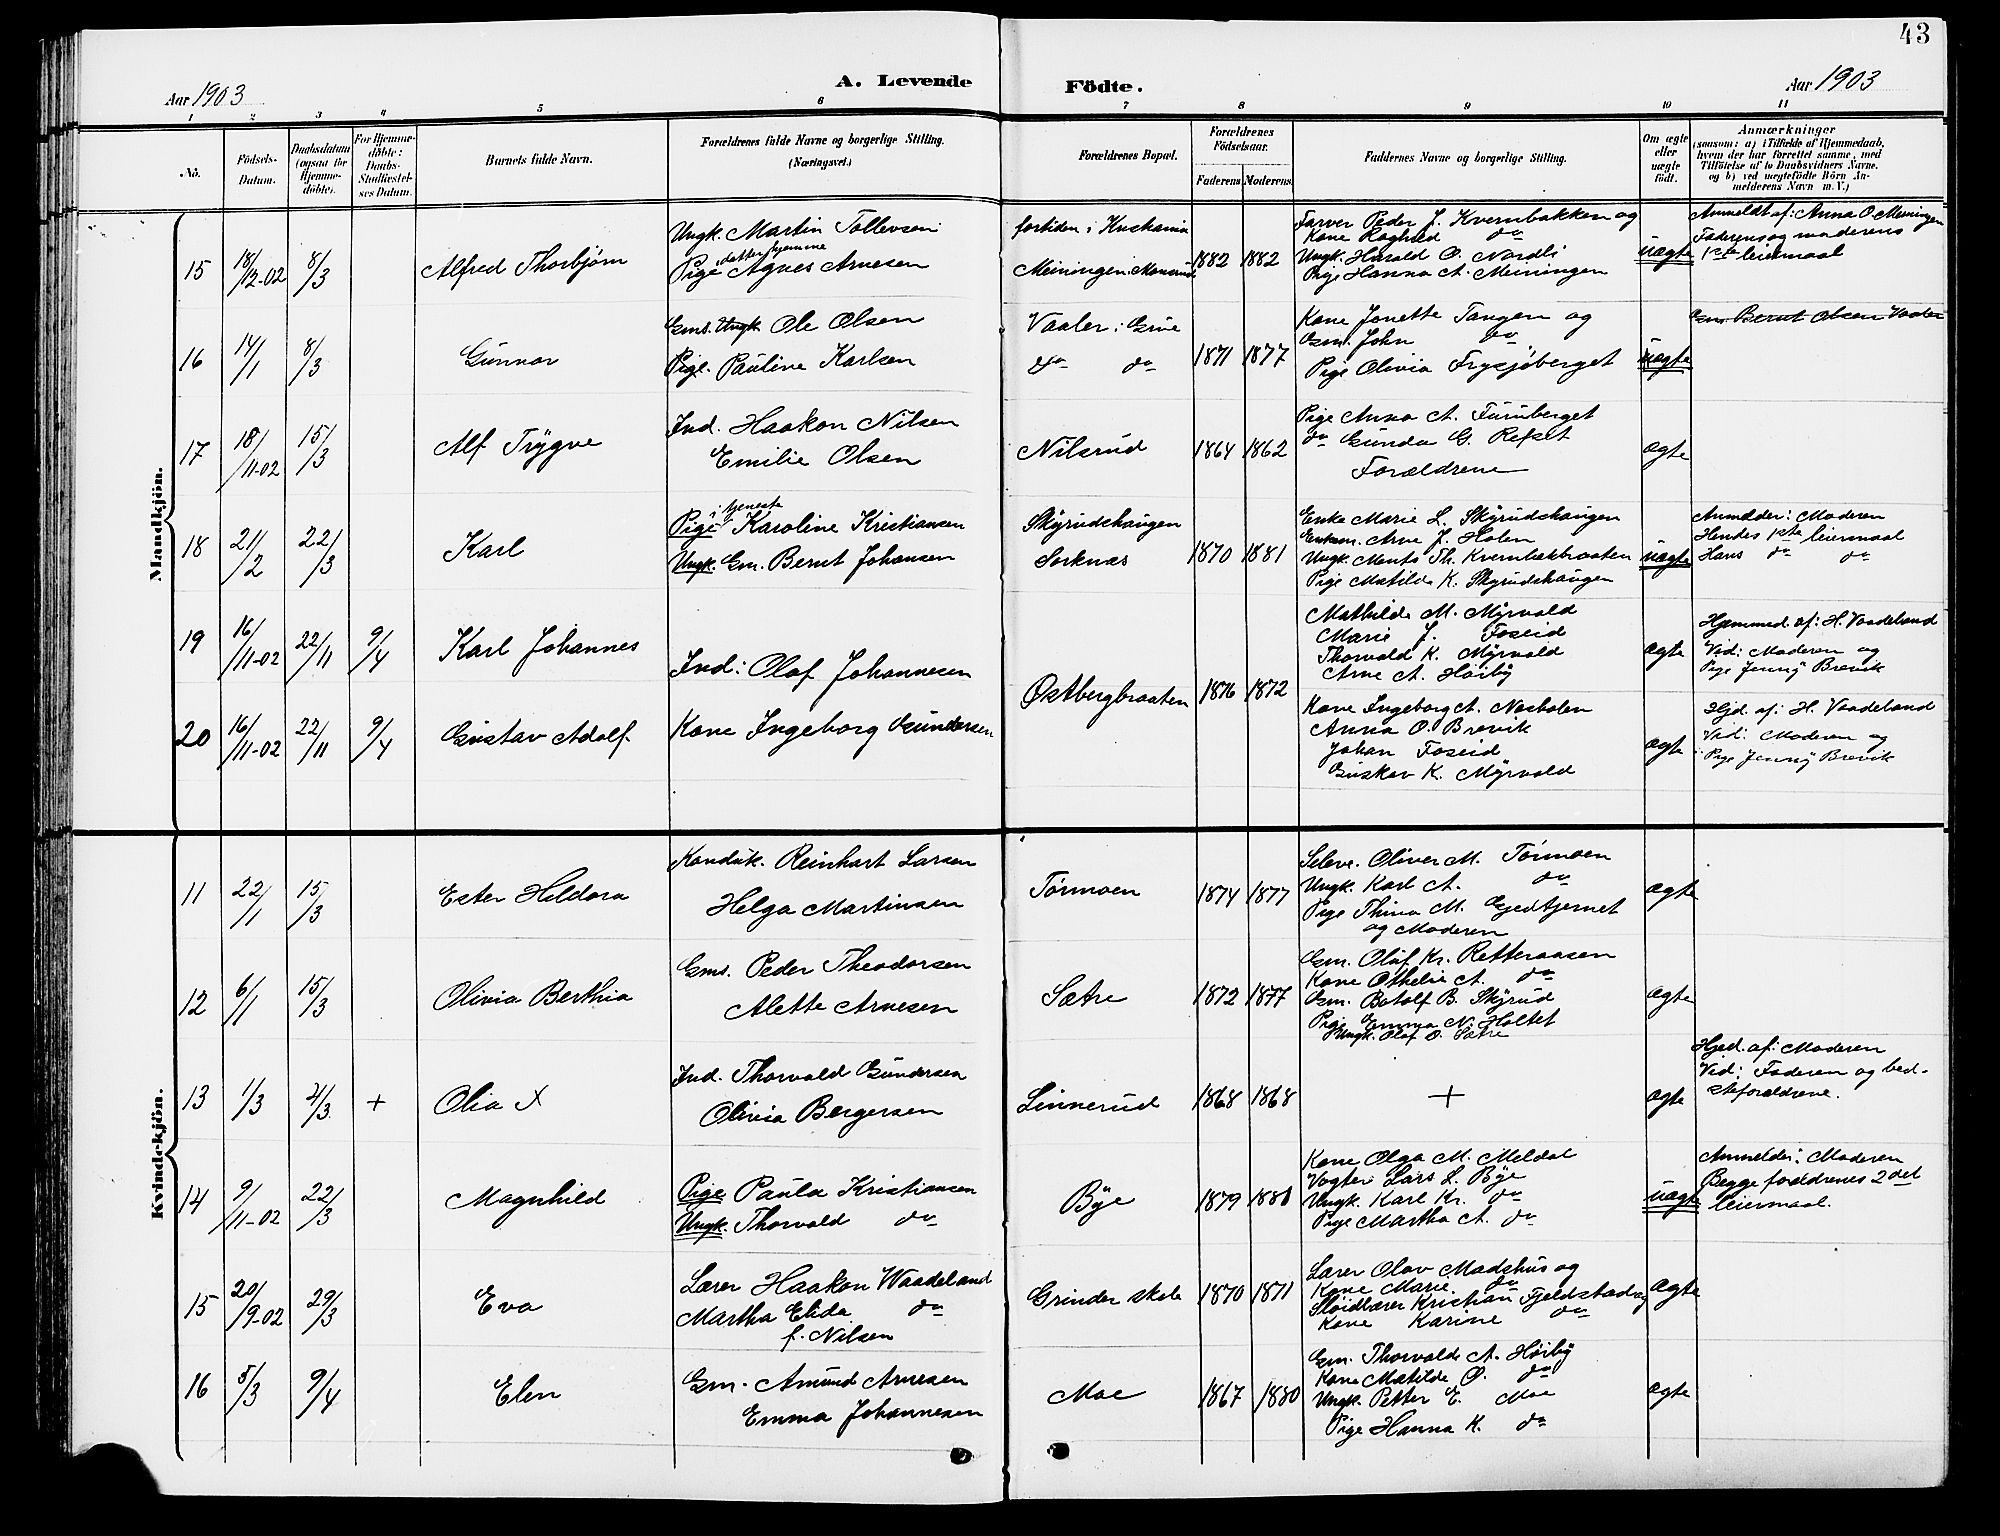 43
Aar 1903
A. Levende
Födte.
Aar 1903
1 2 3 4 5 6 7 8 9 10 11
No.
Födsels-
Datum.
Daabsdatum
(ogsaa for
Hjemme-
döbte).
For Hjemme-
döbte:
Daabs-
Stadfæstel-
ses Datum.
Barnets fulde Navn.
Forældrenes fulde Navne og borgerlige Stilling.
(Næringsvei.)
Forældrenes Bopæl.
Forældrenes
Födselsaar.
Faderens.
Moderens.
Faddernes Navne og borgerlige Stilling.
Om ægte
eller
uægte
födt.
Anmærkninger
(saasom: a) i Tilfælde af Hjemmedaab,
hvem der har forrettet samme, med
Tilföielse af to Daabsvidners Navne.
og b) ved uægtefödte Börn An-
melderens Navn m. V.)
Mandkjön.
15 18/12-02 8/3
Alfred Thorbjørn
Ungk. Martin Tollevsen
datter hjemme
Pige Agnes Arnesen
fortiden i Kristiania
Meiningen, Monsrud
1882 1882
Farver Peder J. Kvernbakken og
Kone Raghild do
Ungk. Harald O. Nordli
Pige Hanna A. Meiningen
uægte
Anmeldt af: Anna O. Meiningen
Faderens og moderens
1ste leiermaal
16 14/1 8/3
Gunnar
Gms. Ungk Ole Olsen
Pige. Pauline Karlsen
Vaaler i Grue
do do
1871 1877
Kone Jonette Tangen og
Gsm. John do
Pige Olivia Frysjøberget
uægte
Gm. Bernt Olsen Vaaler
17 18/11-02 15/3
Alf Trygve
Ind. Haakon Nilsen
Emilie Olsen
Nilsrud
1864 1862
Pige Anna A. Furuberget
do Gunda G. Refset
Forældrene
ægte
18 21/2 22/3
Karl
i tjeneste
Pige Karoline Kristiansen
Ungk. Gm. Bernt Johansen
Skyrudshaugen
Sorknæs
1870 1881
Enke Marie L. Skyrudshaugen
Enkem. Arne J. Holen
Ungk. Ments Th. Kvernbakbraaten
Pige Matilde K. Skyrudshaugen
uægte
Anmelder: Moderen
Hendes 1ste leiermaal
Hans do do
19 16/11-02 22/11 9/4
Karl Johannes
Ind: Olaf Johannesen
Østbergbraaten
1876 1872
Mathilde M. Myrvold
Marie J. Foseid
Thorvald K. Myrvold
Arne A. Høiby
ægte
Hjemmed. af: H. Vaadeland
Vid: Moderen og
Pige Jenny Brevik
20 16/11-02 22/11 9/4
Gustav Adolf.
Kone Ingeborg Gundersen
Kone Ingeborg A. Nesholen
Anna O. Brevik
Johan Foseid
Gustav K. Myrvold
ægte
Hjd. af: H. Vaadeland
Vid: Moderen og
Pige Jenny Brevik
Kvindekjön.
11 22/1 15/3
Ester Hildora
Konduk. Reinhart Larsen
Helga Martinsen
Tørmoen
1874 1877
Seleve. Oliver M. Tørmoen
Ungk. Karl A. do
Pige Thina M. Gjedtjernet
og Moderen
ægte
12 6/1 15/3
Olivia Berthia
Gms. Peder Theodorsen
Alette Arnesen
Sætre
1872 1877
Gm. Olaf Kr. Retteraasen
Kone Othelie A. do
Gm. Botolf B. Skyrud
Pige Emma N. Holtet
Ungk. Olaf O. Sætre
ægte
13 1/3 4/3 +
Olia X
Ind. Thorvald Gundersen
Olivia Bergersen
Linnerud
1868 1868
+
ægte
Hjed. af: Moderen
Vid: Faderen og bed-
steforældrene.
14 9/11-02 22/3
Magnhild
Pige Paula Kristiansen
Ungk. Thorvald do
Bye
1879 1880
Kone Olga M. Meldal
Vogter Lars L. Bye
Ungk. Karl Kr. do
Pige Martha A. do
uægte
Anmelder: Moderen
Begge forældrenes 2det
leiermaal.
15 20/9-02 29/3
Eva
Lærer Haakon Waadeland
Martha Elida do
f. Nilsen
Grinder skole
1870 1871
Lærer Olav Madshus og
Kone Marie do
Sløidlærer Kristian Fjeldstad og
Kone Karine do
ægte
16 8/3 9/4
Elen
Gm. Amund Arnesen
Emma Johannesen
Moe
1867 1880
Gm. Thorvald A. Høiby
Kone Matilde O. do
Ungk. Petter E. Moe
Pige Hanna K. do
ægte